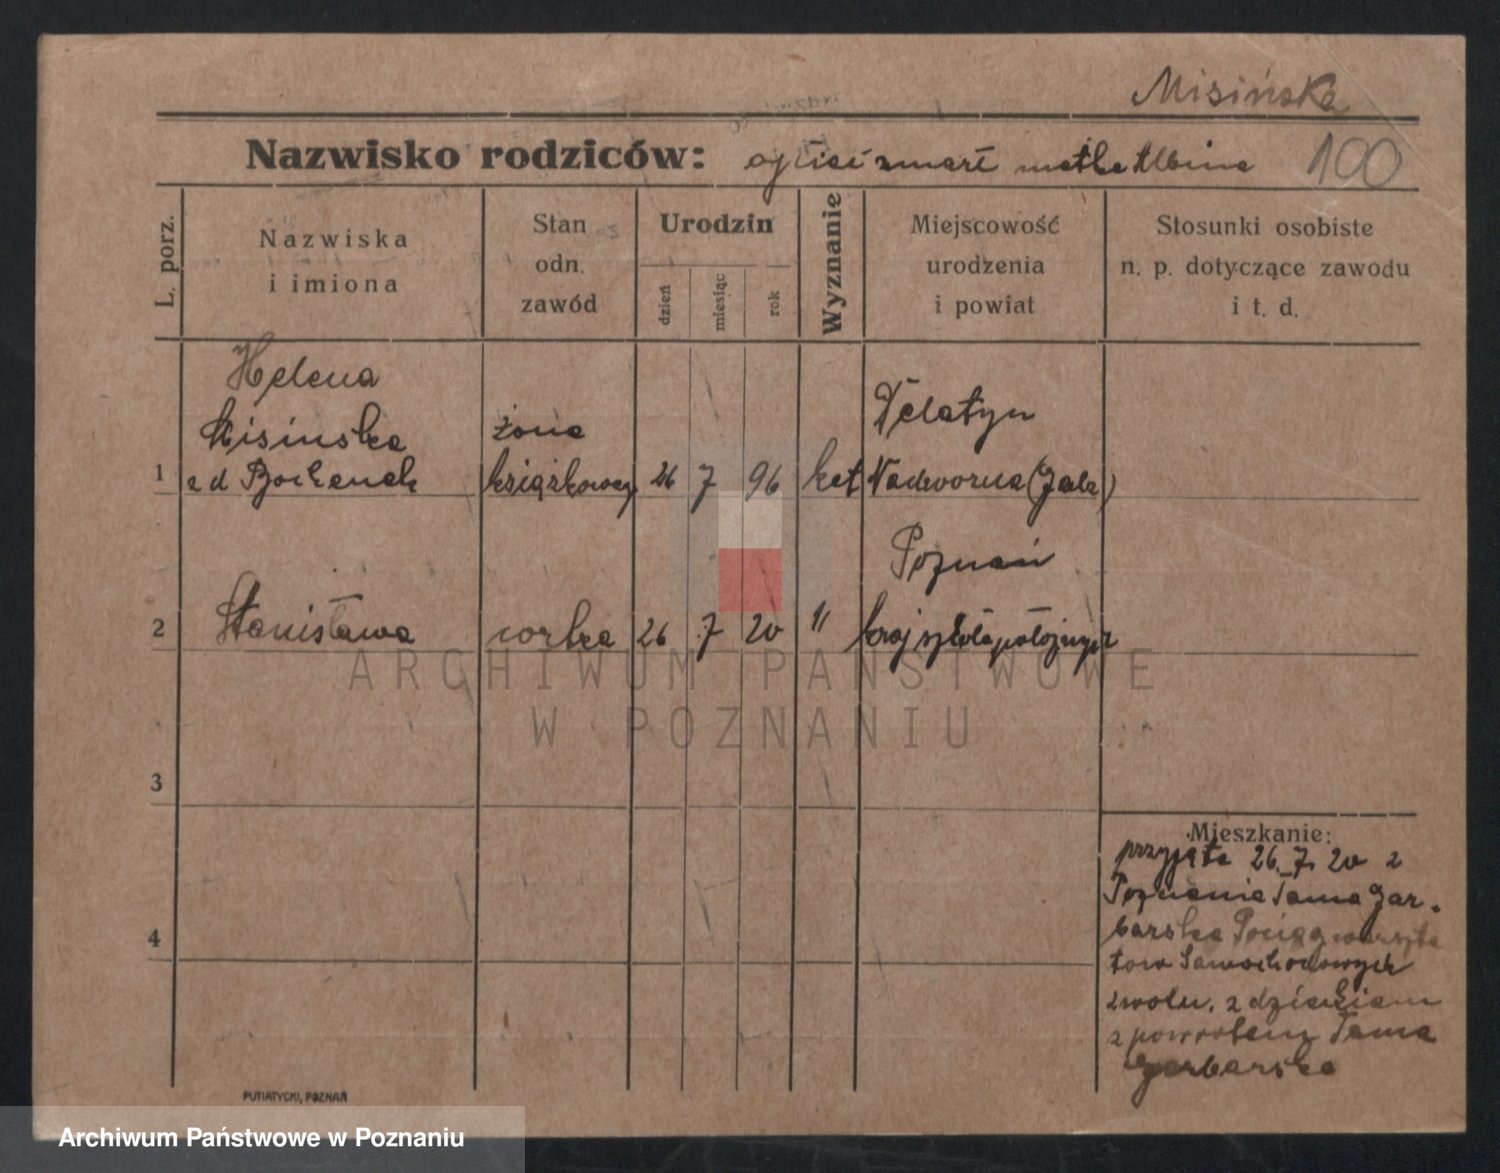 Misińska
Nazwisko rodziców: ojciec zmarł matka Albina 100
L. porz.
Nazwiska
i imiona
Stan
odn.
zawód
Urodzin
dzień
miesiąc
rok
Wyznanie
Miejscowość
urodzenia
i powiat
Stosunki osobiste
n. p. dotyczące zawodu
i t. d.
Helena
Misinska
1 z d Bochenek
żona
książkowego 26 7 96 kat
Delatyn
Nadworna (Gal.)
Poznań
2 Stanisława corka 26 7 20 "
kraj szkoła położnych
ARCHIWUM PAŃSTWOWE
W POZNANIU
3
4
Mieszkanie:
przyjęta 26.7. 20 z
Poznania Tama Gar-
barska Pociąg warszta
tow Samochodowych
zwoln. z dzieckiem
z powrotem Tama
Garbarska
PUTIATYCKI, POZNAŃ
Archiwum Państwowe w Poznaniu